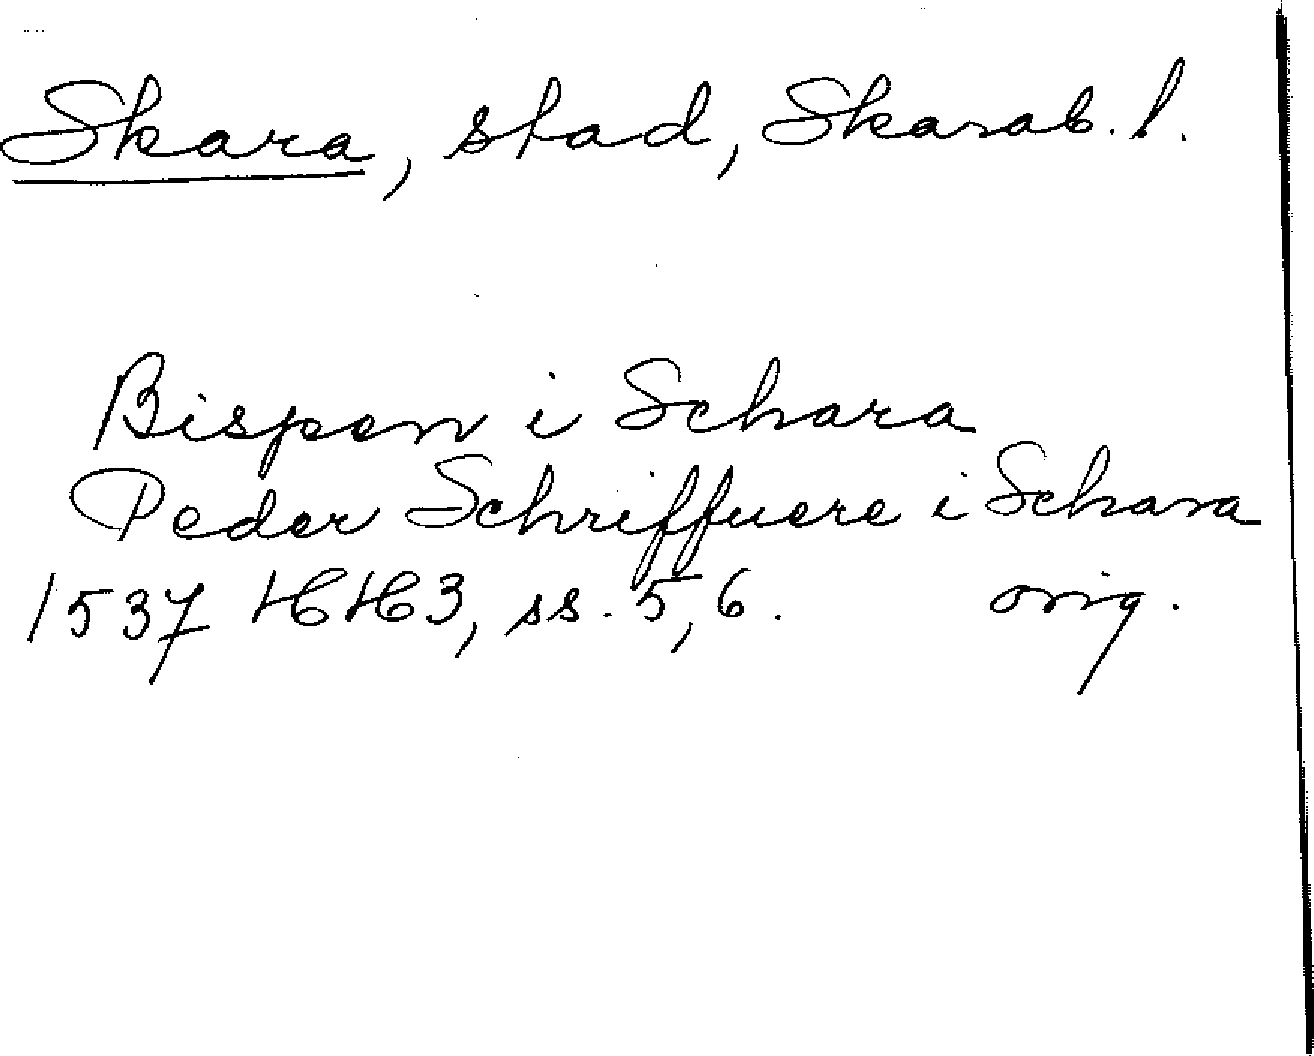 Skara, stad, Skarab. l.
Bispen i Schara
Peder Schriffuere i Schara
1537 HH3, ss. 5, 6. orig.